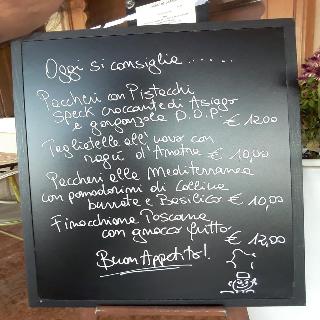 Oggi si consiglia......
Paccheri con Pistacchi
Speck croccante di Asiago
e gorgonzola D.O.P. € 12,00
Tagliatelle all'uovo con
ragù d'Anatra € 10,00
Paccheri alla Mediterranea
con pomodorini di Collina
burrata e Basilico € 10,00
Finocchiona Toscana
con gnocco fritto
€ 12,00
Buon Appetito!